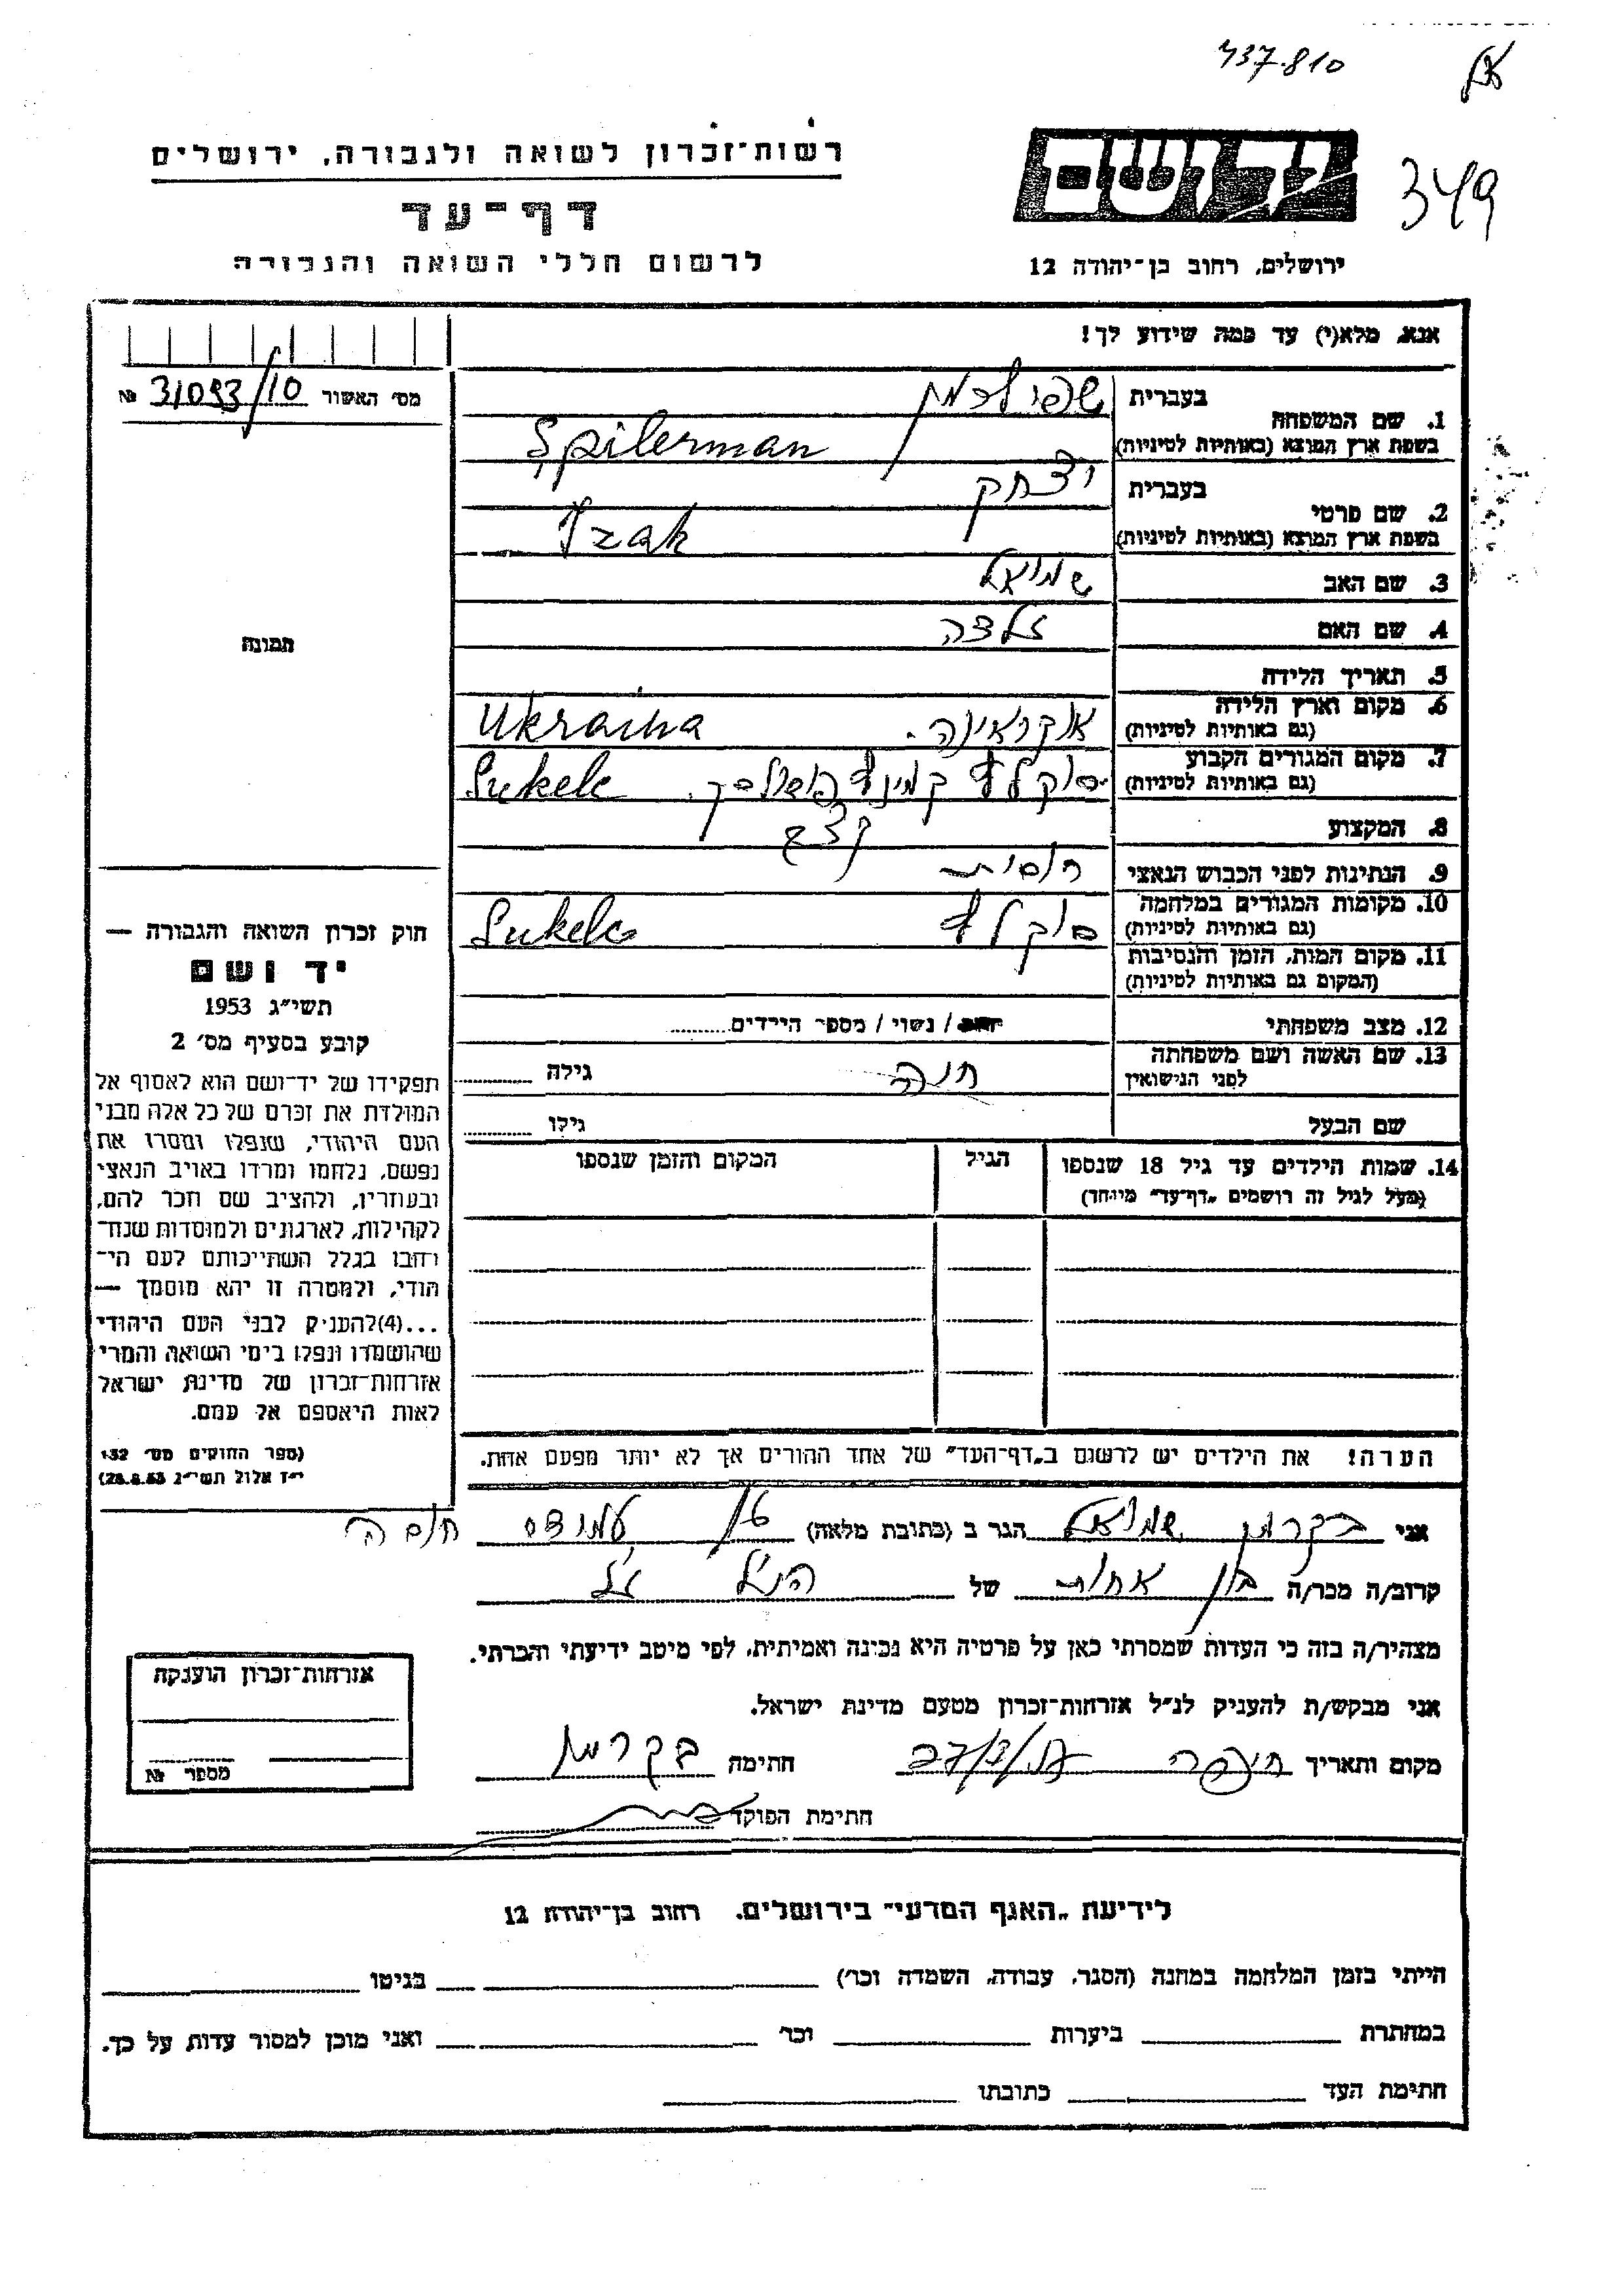 437.810
349
רשות־זכרון לשואה ולגבורה, ירושלים
יד ושם
דף־עד
לרשום חללי השואה והגבורה
ירושלים, רחוב בן־יהודה 12
אנא, מלא(י) עד כמה שידוע לך!
מס׳ האשור 31093/10 №
1. שם המשפחה
בעברית שפילרמן
בשפת ארץ המוצא (באותיות לטיניות) Spilerman
2. שם פרטי
בעברית יצחק
בשפת ארץ המוצא (באותיות לטיניות) Izak
3. שם האב שמואל
4. שם האם
תמונה
5. תאריך הלידה
6. מקום וארץ הלידה
(גם באותיות לטיניות) אוקראינה. Ukraina
7. מקום המגורים הקבוע
(גם באותיות לטיניות) Sukele
8. המקצוע קצב
9. הנתינות לפני הכבוש הנאצי רוסית
10. מקומות המגורים במלחמה
(גם באותיות לטיניות) Sukele
11. מקום המות, הזמן והנסיבות
(המקום גם באותיות לטיניות)
12. מצב משפחתי / נשוי / מספר הילדים
13. שם האשה ושם משפחתה
לפני הנישואין חנה גילה
שם הבעל גילו
14. שמות הילדים עד גיל 18 שנספו
(מעל לגיל זה רושמים „דף־עד״ מיוחד)
הגיל
המקום והזמן שנספו
חוק זכרון השואה והגבורה —
יד ושם
תשי״ג 1953
קובע בסעיף מס׳ 2
תפקידו של יד־ושם הוא לאסוף אל
המולדת את זכרם של כל אלה מבני
העם היהודי, שנפלו ומסרו את
נפשם, נלחמו ומרדו באויב הנאצי
ובעוזריו, ולהציב שם וזכר להם,
לקהילות, לארגונים ולמוסדות שנח־
רבו בגלל השתייכותם לעם הי־
הודי, ולמטרה זו יהא מוסמך —
...(4)להעניק לבני העם היהודי
שהושמדו ונפלו בימי השואה והמרי
אזרחות־זכרון של מדינת ישראל
לאות היאספם אל עמם.
(ספר החוקים מס׳ 132
י״ז אלול תשי״ג 28.8.53)
הערה! את הילדים יש לרשום ב„דף־העד״ של אחד ההורים אך לא יותר מפעם אחת.
אני בקרמן שמואל הגר ב (כתובת מלאה)
קרוב/ה מכר/ה בן אחות של הנ״ל
מצהיר/ה בזה כי העדות שמסרתי כאן על פרטיה היא נכונה ואמיתית, לפי מיטב ידיעתי והכרתי.
אני מבקש/ת להעניק לנ״ל אזרחות־זכרון מטעם מדינת ישראל.
מקום ותאריך חיפה חתימה בקרמן
חתימת הפוקד
אזרחות־זכרון הוענקה
מספר №
לידיעת „האגף המדעי״ בירושלים, רחוב בן־יהודה 12
הייתי בזמן המלחמה במחנה (הסגר, עבודה, השמדה וכו׳) בגיטו
במחתרת ביערות וכו׳ ואני מוכן למסור עדות על כך.
חתימת העד כתובתו